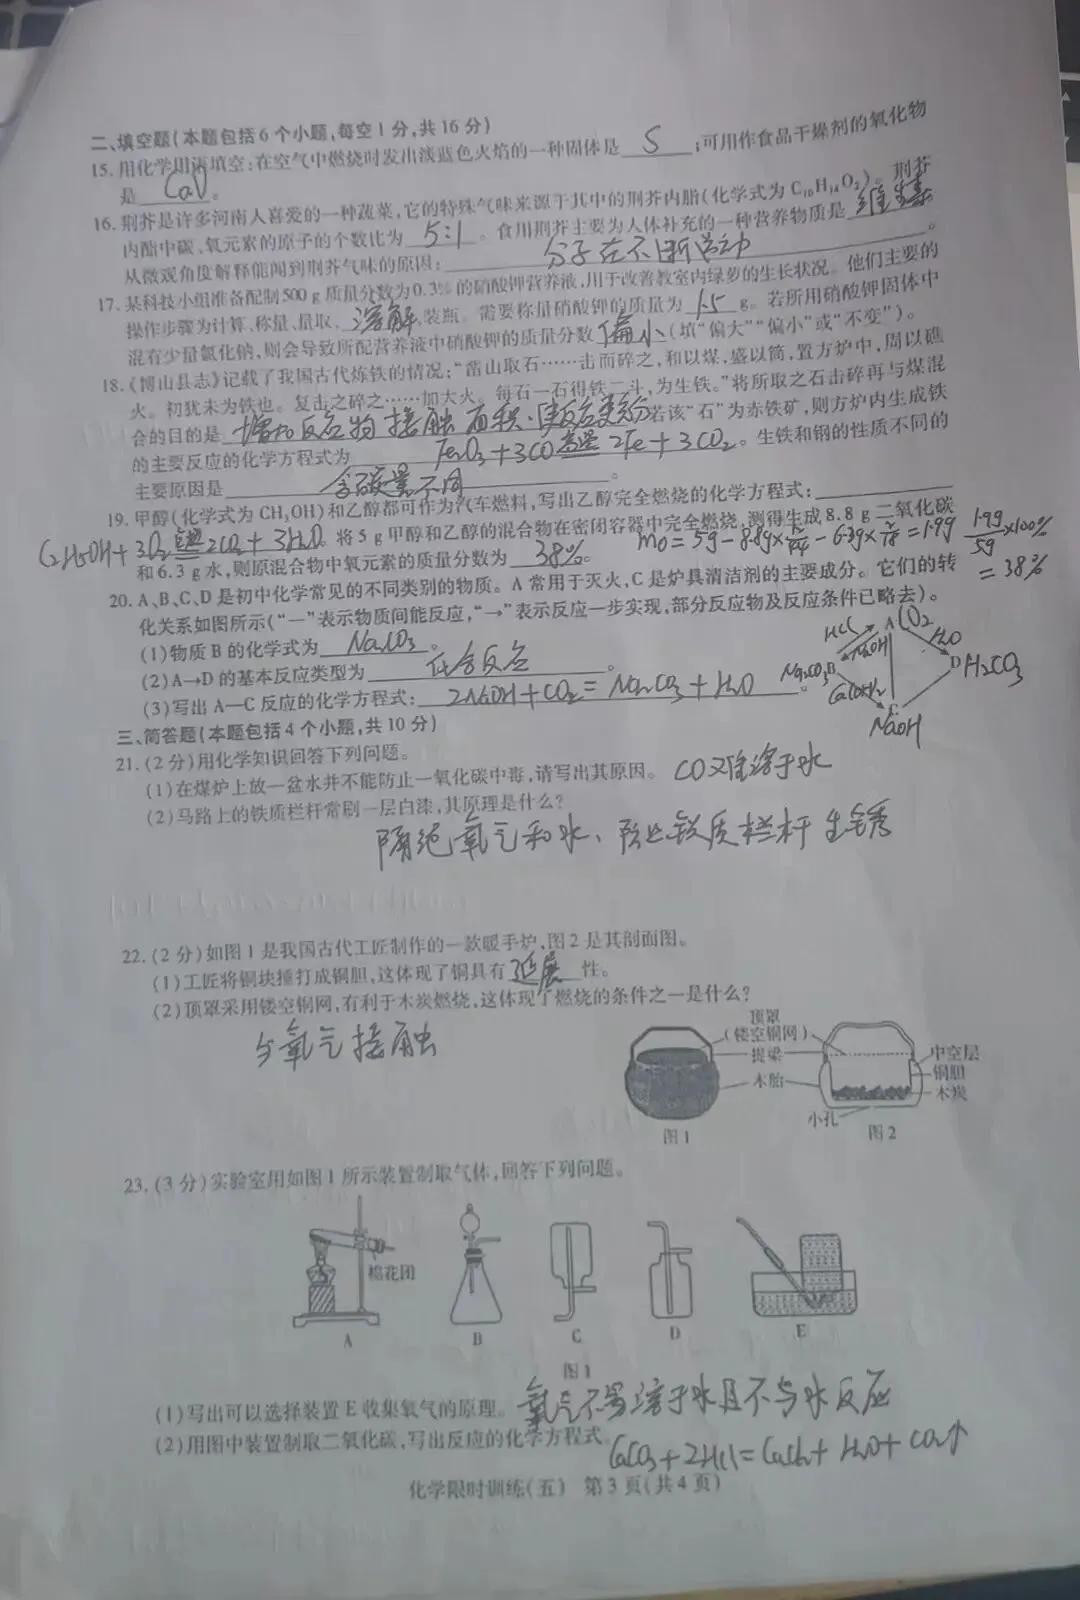 二、填空题(本题包括6个小题,每空1分,共16分)
15. 用化学用语填空:在空气中燃烧时发出淡蓝色火焰的一种固体是 S ;可用作食品干燥剂的氧化物
是 CaO 。
16. 荆芥是许多河南人喜爱的一种蔬菜,它的特殊气味来源于其中的荆芥内脂(化学式为C₁₀H₁₄O₂)。荆芥
内酯中碳、氧元素的原子的个数比为 5:1 。食用荆芥主要为人体补充的一种营养物质是 维生素
从微观角度解释能闻到荆芥气味的原因: 分子在不断运动 。
17. 某科技小组准备配制500 g质量分数为0.3%的硝酸钾营养液,用于改善教室内绿萝的生长状况。他们主要的
操作步骤为计算、称量、量取、 溶解 、装瓶。需要称量硝酸钾的质量为 1.5 g。若所用硝酸钾固体中
混有少量氯化钠,则会导致所配营养液中硝酸钾的质量分数 偏小 (填“偏大”“偏小”或“不变”)。
18.《博山县志》记载了我国古代炼铁的情况:“凿山取石……击而碎之,和以煤,盛以筒,置方炉中,周以礁
火。初犹未为铁也。复击之碎之……加大火。每石一石得铁二斗,为生铁。”将所取之石击碎再与煤混
合的目的是 增加反应物接触面积,使反应更充分 若该“石”为赤铁矿,则方炉内生成铁
的主要反应的化学方程式为 Fe₂O₃+3CO 高温 2Fe+3CO₂ 。生铁和钢的性质不同的
主要原因是 含碳量不同 。
19. 甲醇(化学式为CH₃OH)和乙醇都可作为汽车燃料,写出乙醇完全燃烧的化学方程式:
C₂H₅OH+3O₂ 点燃 2CO₂+3H₂O 。将5 g甲醇和乙醇的混合物在密闭容器中完全燃烧,测得生成8.8 g二氧化碳
和6.3 g水,则原混合物中氧元素的质量分数为 38% 。 mo=5g-8.8g×12/44-6.3g×2/18=1.9g 1.9g/5g×100%
=38%
20. A、B、C、D是初中化学常见的不同类别的物质。A常用于灭火,C是炉具清洁剂的主要成分。它们的转
化关系如图所示(“—”表示物质间能反应,“→”表示反应一步实现,部分反应物及反应条件已略去)。
(1)物质B的化学式为 Na₂CO₃ 。
(2)A→D的基本反应类型为 化合反应 。
(3)写出A—C反应的化学方程式: 2NaOH+CO₂=Na₂CO₃+H₂O 。
A CO₂
HCl
NaOH
H₂O
Na₂CO₃ B
D H₂CO₃
Ca(OH)₂
C
NaOH
三、简答题(本题包括4个小题,共10分)
21. (2分)用化学知识回答下列问题。
(1)在煤炉上放一盆水并不能防止一氧化碳中毒,请写出其原因。 CO难溶于水
(2)马路上的铁质栏杆常刷一层白漆,其原理是什么?
隔绝氧气和水、防止铁质栏杆生锈
22. (2分)如图1是我国古代工匠制作的一款暖手炉,图2是其剖面图。
(1)工匠将铜块捶打成铜胆,这体现了铜具有 延展 性。
(2)顶罩采用镂空铜网,有利于木炭燃烧,这体现了燃烧的条件之一是什么?
与氧气接触
顶罩
(镂空铜网)
提梁
木胎
中空层
铜胆
木炭
小孔
图1
图2
23. (3分)实验室用如图1所示装置制取气体,回答下列问题。
棉花团
A B C D E
图1
(1)写出可以选择装置E收集氧气的原理。 氧气不易溶于水且不与水反应
(2)用图中装置制取二氧化碳,写出反应的化学方程式。 CaCO₃+2HCl=CaCl₂+H₂O+CO₂↑
化学限时训练(五) 第3页(共4页)